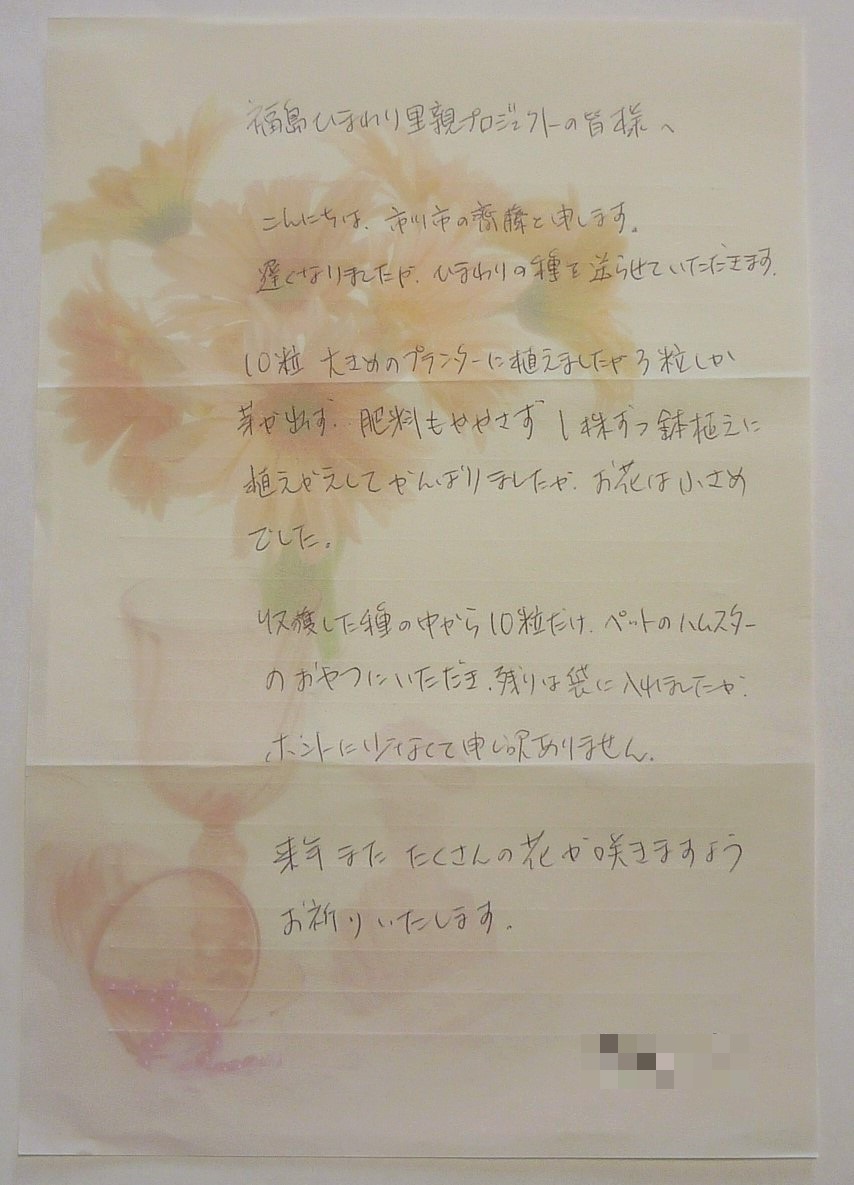 福島ひまわり里親プロジェクトの皆様へ
こんにちは、市川市の齋藤と申します。
遅くなりましたが、ひまわりの種を送らせていただきます。
10粒 大きめのプランターに植えましたが3粒しか
芽が出ず、肥料もややさず 1株ずつ鉢植えに
植えかえしてがんばりましたが、お花は小さめ
でした。
収獲した種の中から10粒だけ、ペットのハムスター
のおやつにいただき、残りは袋に入れましたが、
ホントに少なくて申し訳ありません。
来年また たくさんの花が咲きますよう
お祈りいたします。